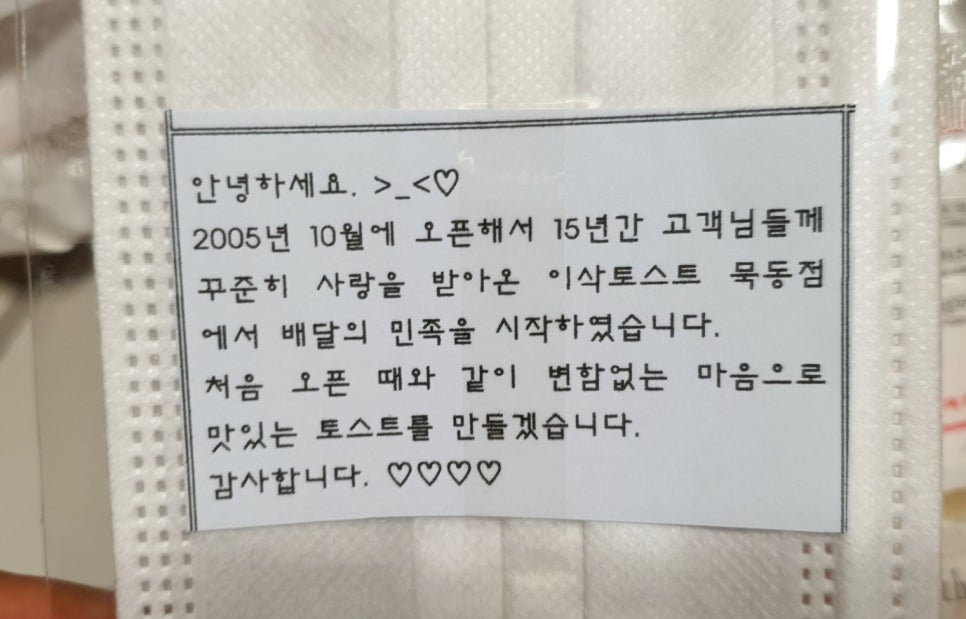 안녕하세요. >_<♡
2005년 10월에 오픈해서 15년간 고객님들께
꾸준히 사랑을 받아온 이삭토스트 묵동점
에서 배달의 민족을 시작하였습니다.
처음 오픈 때와 같이 변함없는 마음으로
맛있는 토스트를 만들겠습니다.
감사합니다. ♡♡♡♡